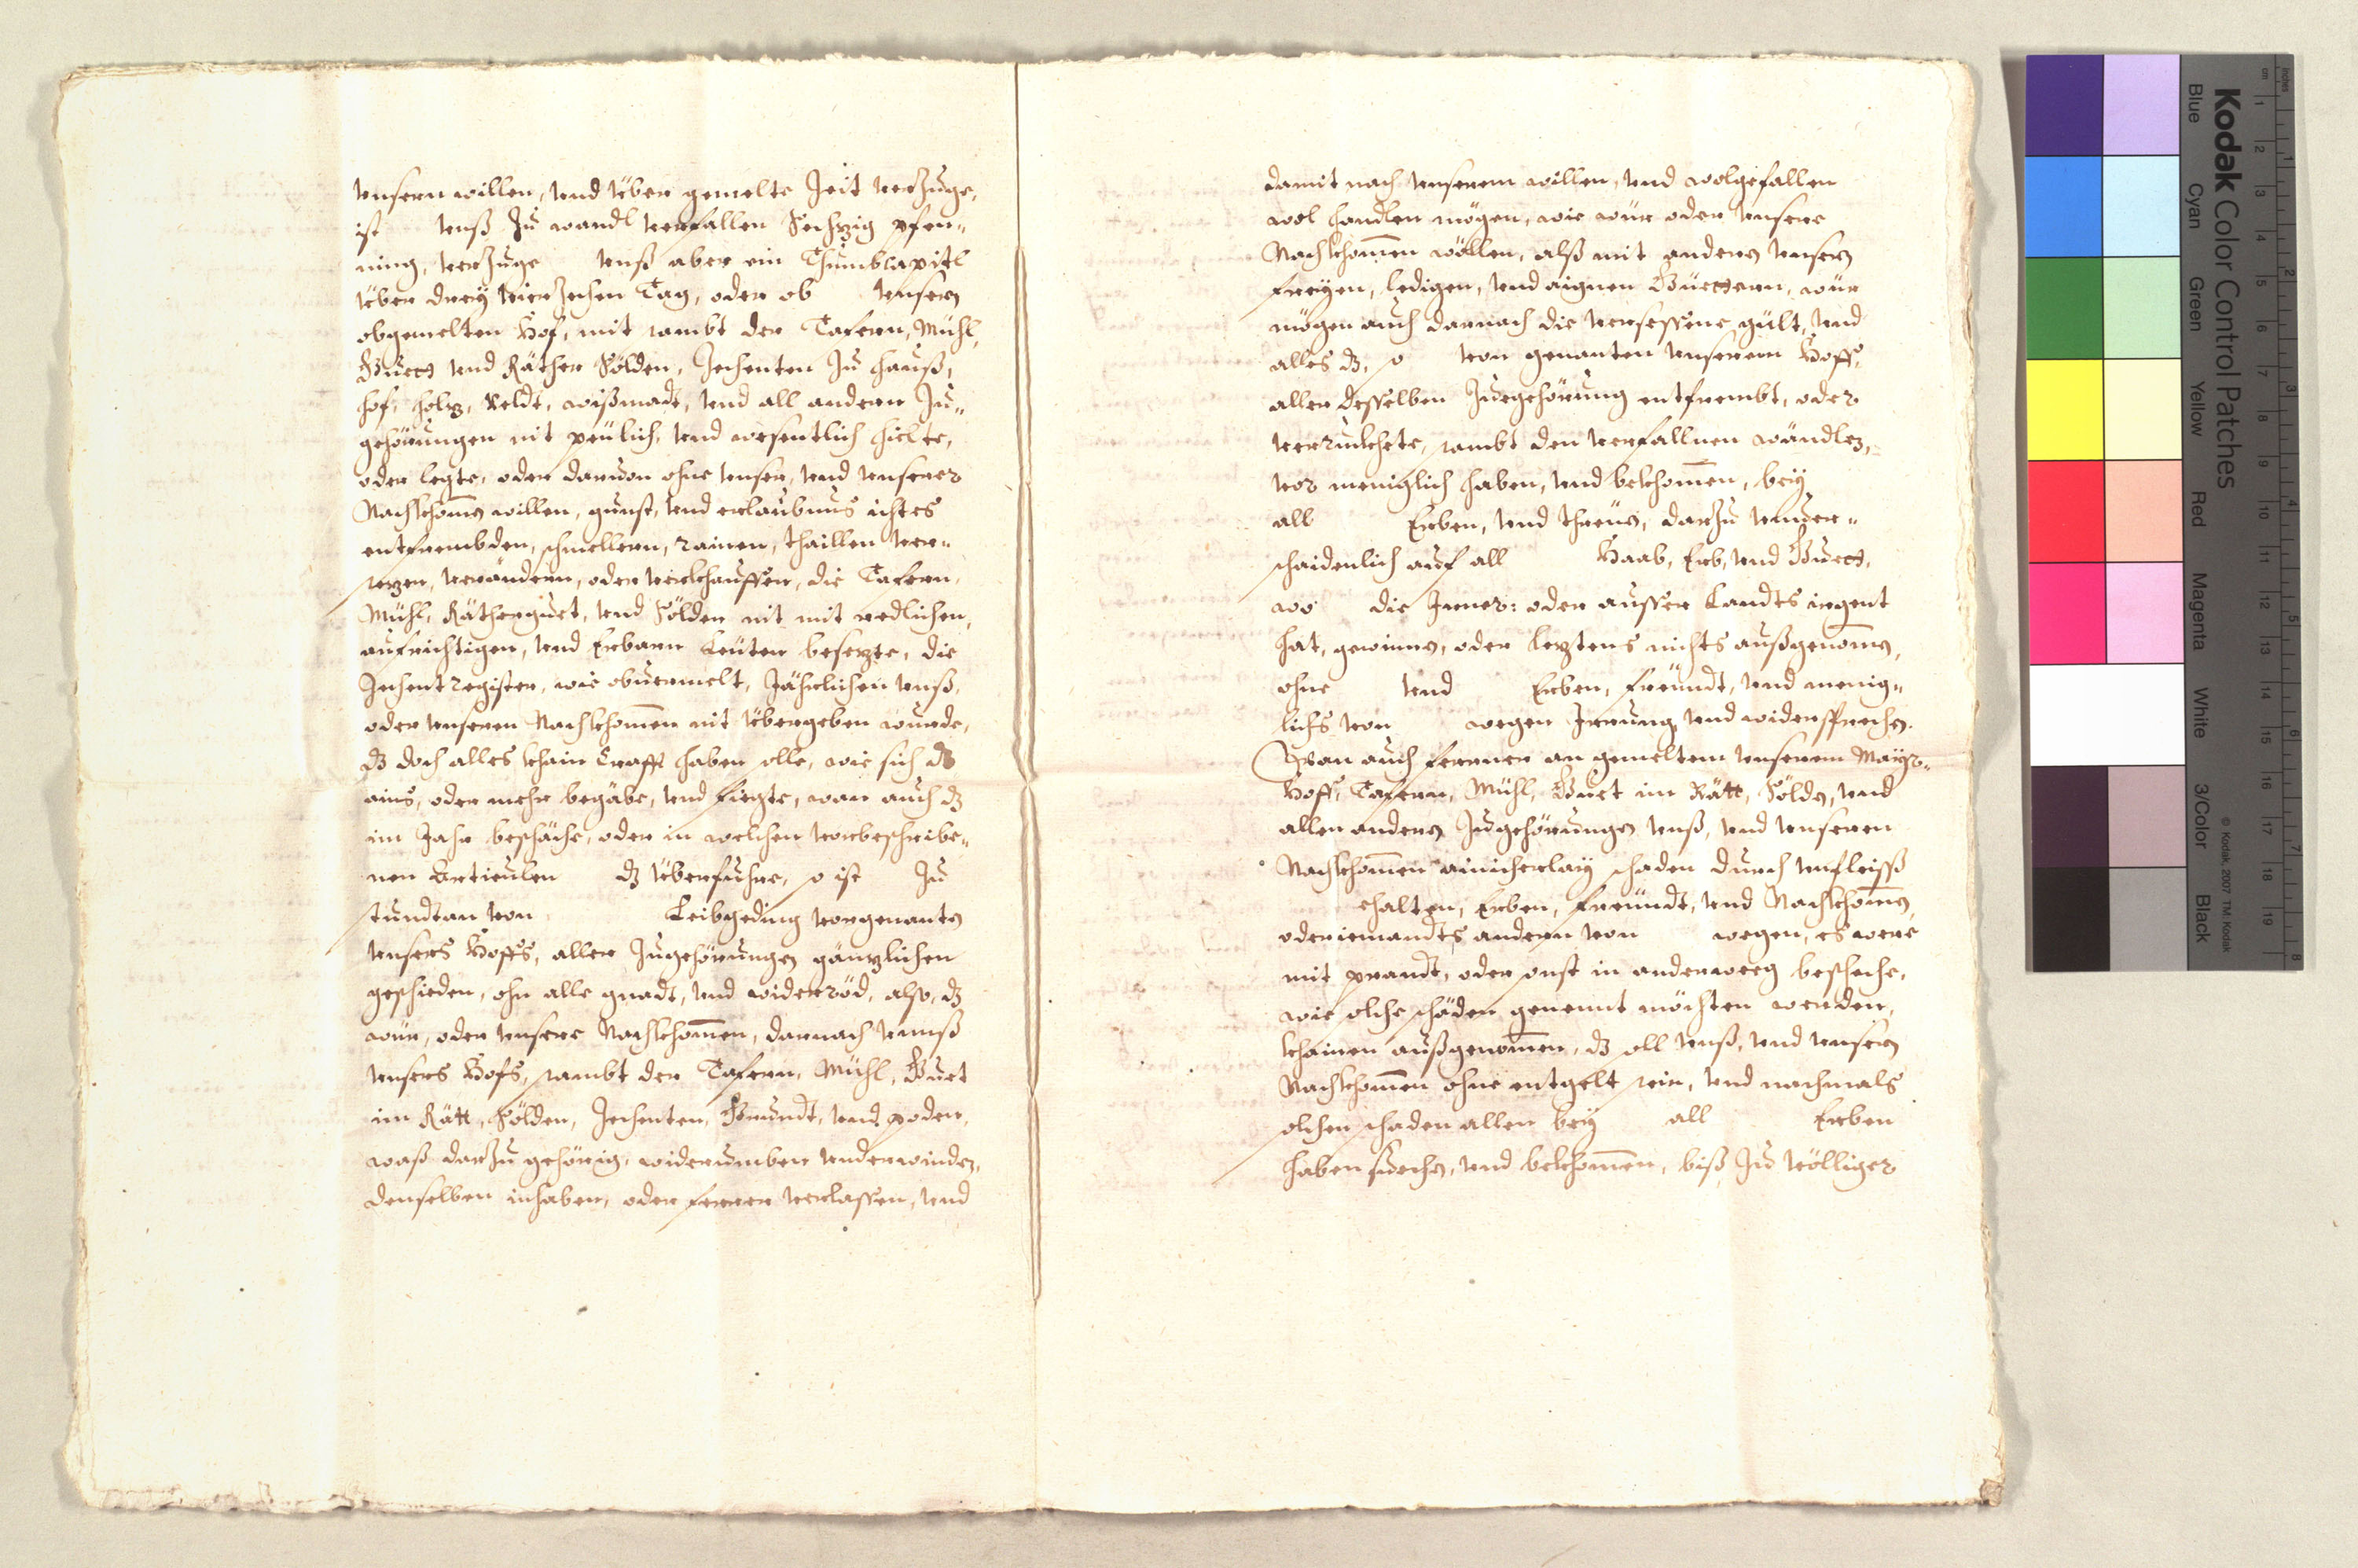 Unsern willen, und über gemelte Zeit verzuge,
ist unß zu wandl verfallen Sechzig pfen-
ning, verzuge unß aber ein Thumbcapitl
über drey vierzehen Tag, oder ob unsern
obgemelten Hof, mit sambt der Tafern, Mühl,
Guett und Räther Sölden, Zechenten zu hauß,
hof, holz, Veldt, wißmadt, und all andern Zu-
gehörungen nit peülich, und wesentlich hielte,
oder legte, oder darvon ohne unser, und unserer
Nachkhomen willen, gunst, und erlaubnus ichtes
entfrembden, schmellern, rainen, thaillen ver-
sezen, verändern, oder verkhauffen, die Tafern,
Mühl, Räthergüet, und Sölden nit mit redlichen,
aufrichtigen, und Erbarn Leüten besezte, die
Zehent register, wie obvermelt, Jährlichen unß,
oder unseren Nachkhomen nit übergeben wurde,
dz doch alles khain Crafft haben solle, wie sich dz
ains, oder mehr begäbe, und fiegte, wan auch dz
im Jahr beschähe, oder in welchen vorbeschribe-
nen Articulen dz überfuhre, so ist zu
stundtan von Leibgeding vorgenants
unsers Hoffs, aller Zugehörungen gänzlichen
geschieden, ohn alle gnadt, und widerröd, also, dz
wür, oder unsere Nachkhomen, darnach unnß
unsers Hofs, sambt der Tafern, Mühl, Guet
im Rätt, Sölden, Zechenten, Grundt, und poden,
waß darzu gehörig, widerumben underwinden,
denselben inhaben, oder ferrer verlassen, und
damit nach unserem willen, und wolgefallen
wol handlen mögen, wie wür oder unsere
Nachkhomen wöllen, alß mit andern unsern
freyen, ledigen, und aignen Güettern, wür
mögen auch darnach die versessene gült, und
alles dz, so von genanten unserem Hoff,
aller desselben Zuegehörung entfrembt, oder
verruckhete, sambt den verfallnen wändlen,
vor meniglich haben, und bekhomen, bey
all Erben, und threüen, darzu unver-
schaidenlich auf all Haab, Erb, und Guett,
wo die Inner: oder ausser Landts irgent
hat, gewinne, oder leztens nichts außgenomen,
ohne und Erben, freündt, und menig-
lichs von wegen Irrung, und widersprechen.
Wan auch ferrner an gemeltem unserem Mayr-
Hoff, Tafern, Mühl, Guet im Rätt, Sölden, und
allen andern Zugehörungen unß, und unseren
Nachkhomen ainicherlay schaden durch unfleiß
ehalten, Erben, freündt, und Nachkhomen,
oder iemandts andern von wegen, es were
mit prandt, oder sonst in anderweeg beschehe,
wie solche schäden genennt möchten werden,
khainen außgenomen, dz soll unß, und unsern
Nachkhomen ohne entgelt sein, und nachmals
solchen schaden allen bey all Erben
haben suechen, und bekhomen, biß zu völliger
Kodak Color Control Patches
Blue Cyan Green Yellow Red Magenta White 3/Color Black
© Kodak, 2007 TM: Kodak